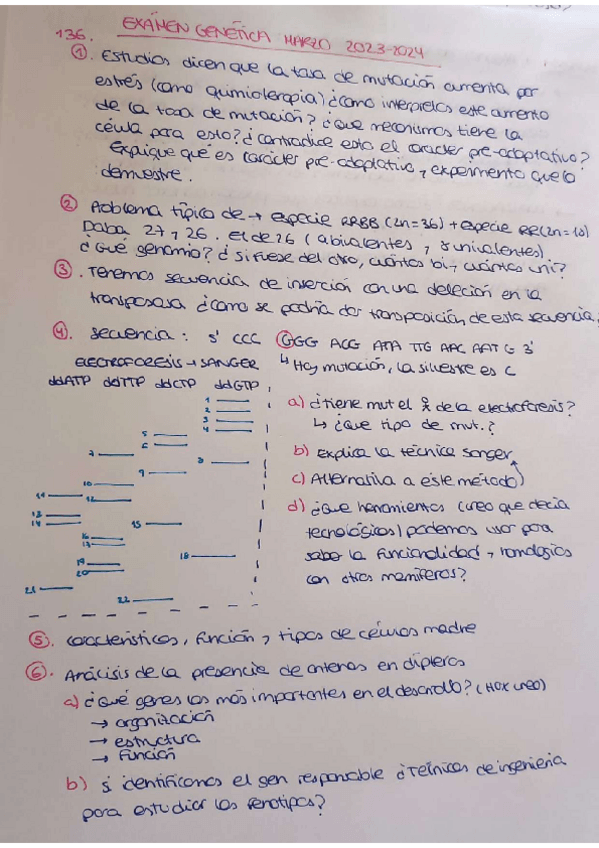 136. EXÁMEN GENÉTICA MARZO 2023-2024
① Estudios dicen que la tasa de mutación aumenta por
estrés (como quimioterapia) ¿cómo interpretas este aumento
de la tasa de mutación? ¿Que mecanismos tiene la
célula para esto? ¿contradice esto el carácter pre-adaptativo?
Explique qué es carácter pre-adaptativo y experimento que lo
demuestre.
② Problema típico de → especie RRBB (2n=36) + especie RR (2n=18)
Daba 27 y 26. El de 26 ( bivalentes y 8 univalentes)
¿Qué genomio? ¿si fuese del otro, cuántos bi- y cuántos uni?
③ . Tenemos secuencia de inserción con una deleción en la
transposasa ¿como se podría dar transposición de esta secuencia?
④. secuencia : 5' CCC GGGG ACG ATA TTG AAC AAT G 3'
↳ Hay mutación, la silvestre es C
ELECTROFORESIS → SANGER
ddATP ddTTP ddCTP ddGTP
1
2
3
4
5
6
7
8
9
10
11
12
13
14
15
16
17
18
19
20
21
22
a) ¿tiene mut el de la electroforesis?
↳ ¿que tipo de mut.?
b) explica la técnica sanger
c) Alternativa a este método
d) ¿Que herramientas (creo que decía
tecnológicas) podemos usar para
saber la funcionalidad y homologías
con otros mamíferos?
⑤. características, función y tipos de células madre
⑥. Análisis de la presencia de antenas en dípteros
a) ¿Qué genes los más importantes en el desarollo? (HOX creo)
→ organización
→ estructura
→ Función
b) si identificamos el gen responsable ¿Técnicas de ingeniería
para estudiar los fenotipos?